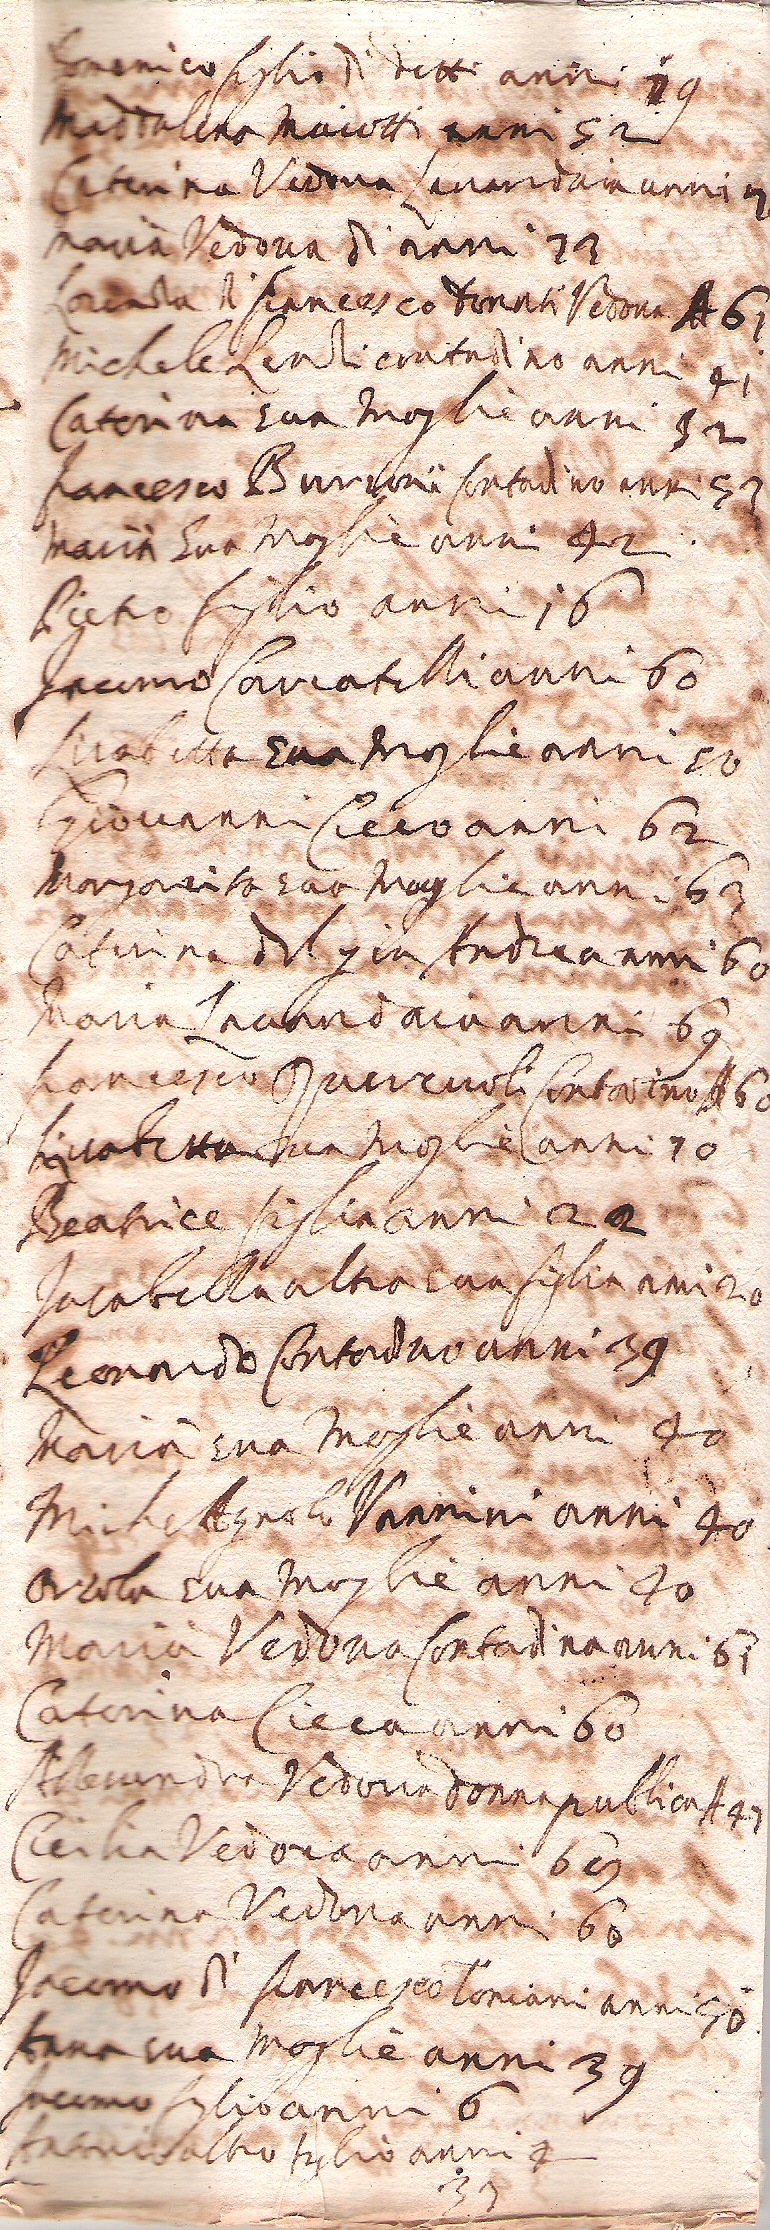 Domenico figlio di detti anni 19
Maddalena Maiotti anni 52
Caterina Vedova Lavandaia anni
Maria Vedova di anni 73
di francesco donati Vedova A 61
Michele contadino anni 41
Caterina sua Moglie anni 32
francesco Burroni Contadino anni 53
Maria sua Moglie anni 42
Pietro figlio anni 16
Jacomo anni 60
Lisabetta sua Moglie anni 50
Giovanni Cieco anni 62
Margarita sua Moglie anni 63
Caterina del già Andrea anni 60
Maria Lavandaia anni 69
francesco Contadino A 60
Lisabetta sua Moglie anni 70
Beatrice figlia anni 22
Isabella altra sua figlia anni 20
Leonardo Contadino anni 39
Maria sua Moglie anni 40
Michelagnolo Vannini anni 40
Orsola sua Moglie anni 40
Maria Vedova Contadina anni 61
Caterina Cieca anni 60
Alessandra Vedova donna publica A 47
Cicilia Vedova anni 69
Caterina Vedova anni 60
Jacomo di francesco anni 50
Anna sua Moglie anni 39
Jacomo figlio anni 6
Antonio altro figlio anni 2
37